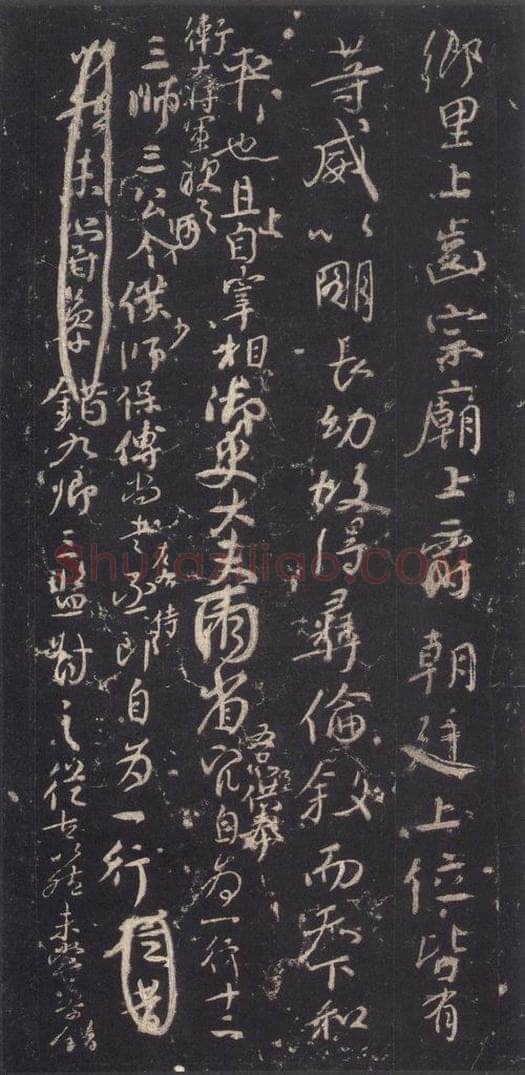 鄉里上齒宗廟上爵朝廷上位皆有
等威以明長幼故得彝倫敘而天下和
平也且上自宰相御史大夫兩省五品供奉官自為一行十二
衛大將軍次之
三師三公令僕少師保傅尚書左右丞侍郎自為一行
未嘗參錯九卿三監對之從古以然未嘗參錯
Shufaziliao.COM